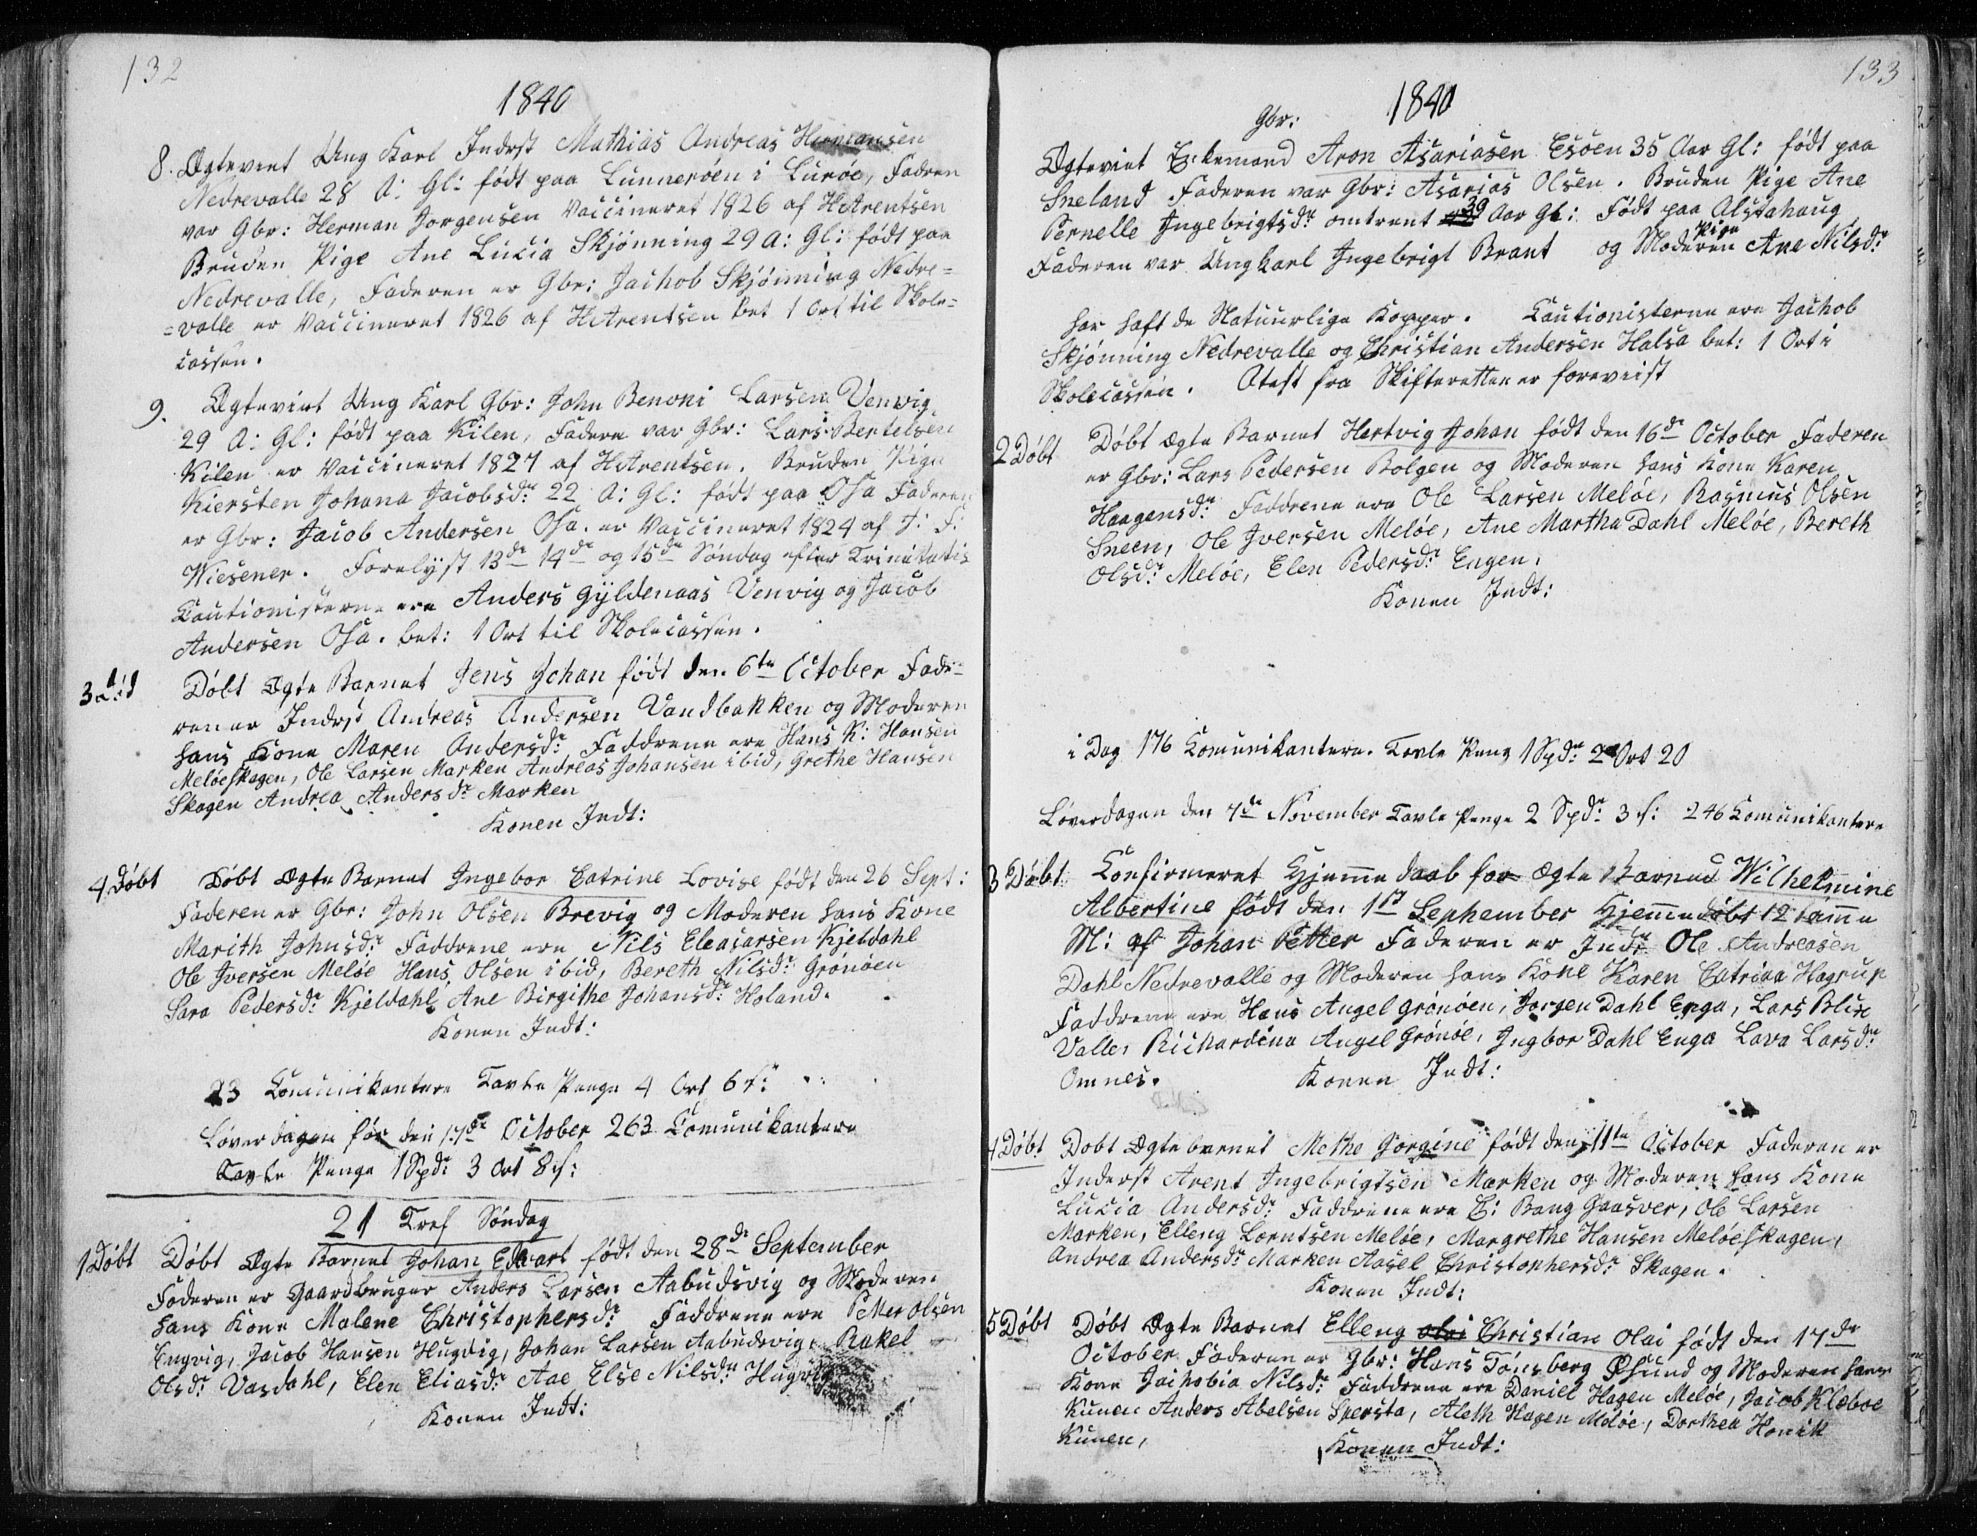 132
1840
8. Ægteviet Ung Karl Inderst Mathias Andreas Hermansen
Nedrevalle 28 A: Gl: født paa Lunnerøen i Lurøe, Fadren
var Gbr: Herman Jorgensen Vaccineret 1826 af HArentsen
Bruden Pige Ane Lucia Skjønning 29 A: Gl: født paa
Nedrevalle, Faderen er Gbr: Jachob Skjønning Nedre=
=valle er Vaccineret 1826 af HArentsen bet 1 Ort til Skole=
cassen.
9. Ægteviet Ung Karl Gbr: John Benoni Larsen Venvig,
29 A: Gl: født paa Kilen, Fadern var Gbr: Lars Bertelsen
Kilen er Vaccineret 1827 af HArentsen. Bruden Pige
Kiersten Johana Jacobsdr 22 A: Gl: født paa Osa Faderen
er Gbr: Jacob Andersen Osa. er Vaccineret 1824 af J: F:
Wiesener. Forelyst 13de 14de og 15de Søndag efter Trinitatis
Cautionisterne ere Anders Gyldenaas Venvig og Jacob
Andersen Osa. bet: 1 Ort til Skolecassen.
3 Døbt Ægte Barnet Jens Johan født den 6te October Fade=
ren er Inderst Andreas Andersen Vandbakken og Moderen
hans Kone Maren Andersdr Faddrene ere Hans K: Hansen
Meløeskagen, Ole Larsen Marken Andreas Johansen ibid, Grethe Hansen
Skagen Andrea Andersdr Marken
Konen Indt:
4 Døbt Døbt Ægte Barnet Ingebor Catrine Lovise født den 26 Sept:
Faderen er Gbr: John Olsen Brevig og Moderen hans Kone
Marith Johnsdr Faddrene ere Nils Eleasarsen Kjeldahl
Ole Iversen Meløe Hans Olsen ibid, Bereth Nilsdr Grønøen
Sara Pedersdr Kjeldahl, Ane Birgithe Johansdr Holand.
Konen Indt:
23 Comunikantere Tavle Penge 4 Ort 6 s:
Løverdagen før den 17de October 263 Comunikantere
Tavle Penge 1 Spdr 3 Ort 8 s:
21 Tref Søndag
1 Døbt Døbt Ægte Barnet Johan Edvart født den 28de September
Faderen er Gaardbruger Anders Larsen Aabudsvig og Moderen
hans Kone Malene Christophersdr Faddrene ere Petter Olsen
Engvig, Jacob Hansen Hugvig, Johan Larsen Aabudsvig, Rakel
Olsdr Vasdahl, Elen Eliasdr Aae Else Nilsdr Hugvig
Konen Indt:
133
1840
Gbr:
Ægteviet Enkemand Aron Asariasen Esøen 35 Aar Gl: født paa
Sneland Faderen var Gbr: Asarias Olsen. Bruden Pige Ane
Pernelle Ingebrigtsdr omtrent 39 Aar Gl: Født paa Alstahaug
Faderen var Ungkarl Ingebrigt Brant og Moderen Pige Ane Nilsdr
har haft de Natuurlige Kopper. Cautionisterne ere Jachob
Skjønning Nedrevalle og Christian Andersen Halsa bet: 1 Ort i
Skolecassen. Atest fra Skifteretten er foreviist
2 Døbt Døbt Ægte Barnet Hertvig Johan født den 16de October Faderen
er Gbr: Lars Pedersen Bolgen og Moderen hans Kone Karen
Haagensdr Faddrene ere Ole Larsen Meløe, Rasmus Olsen
Sneen, Ole Iversen Meløe, Ane Martha Dahl Meløe, Bereth
Olsdr Meløe, Elen Pedersdr Engen.
Konen Indt:
i Dag 176 Comunikantere. Tavle Peng 1 Spdr 2 Ort 20
Løverdagen den 7de November Tavle Penge 2 Spdr 3 s: 246 Comunikantere
3 Døbt Confirmeret Hjemme daab for Ægte Barned Wilhelmine
Albertine født den 1st Sephember Hjemmedøbt 12 samme
M: af Johan Petter Faderen er Indr Ole Andreasen
Dahl Nedrevalle og Moderen hans Kone Karen Catrina Hagrup
Faddrene ere Hans Angel Grønøen, Jorgen Dahl Enga, Lars Blix
Valle, Richardina Angel Grønøe, Ingbor Dahl Enga Lava Larsdr
Omnes. Konen Indt:
4 Døbt Døbt Ægte barnet Methe Jorgine født den 11te October Faderen er
Inderst Arent Ingebrigtsen Marken og Moderen hans Kone
Lucia Andersdr Faddrene ere E: Bang Gaasver, Ole Larsen
Marken, Elleng Lorntsen Meløe, Margrethe Hansen Meløeskagen,
Andrea Andersdr Marken Aasel Christophersdr Skagen.
Konen Indt:
5 Døbt Døbt Ægte Barnet Elleng olai Christian Olai født den 17de
October Faderen er Gbr: Hans Tønsberg Øsund og Moderen hans
Kone Jachobia Nilsdr Faddrene ere Daniel Hagen Meløe, Jacob Klæboe
Kunen Anders Abelsen Spersta, Aleth Hagen Meløe, Dorthea Honik
Kunen,
Konen Indt: